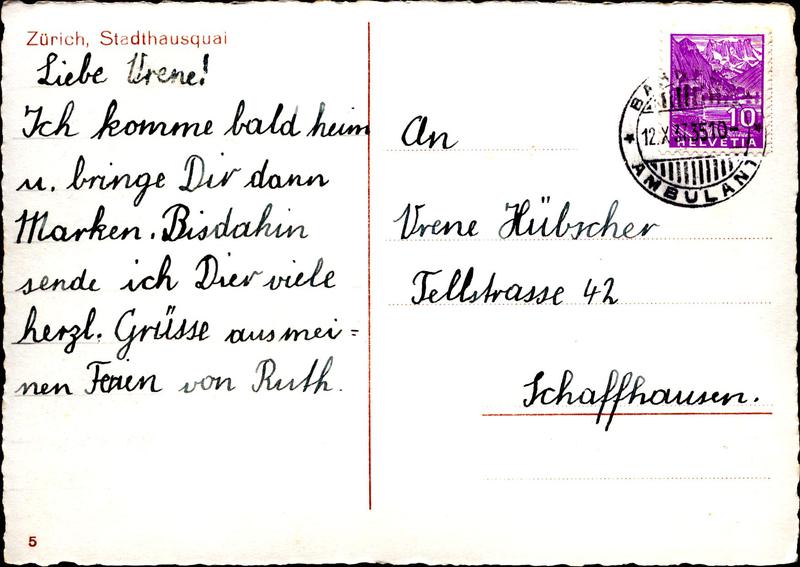 Zürich, Stadthausquai
Liebe Vrene!
Ich komme bald heim
u. bringe Dir dann
Marken. Bisdahin
sende ich Dier viele
herzl. Grüsse aus mei=
nen Ferien von Ruth.
5
An
Vrene Hübscher
Tellstrasse 42
Schaffhausen.
10
HELVETIA
12.X
3510-
AMBULANT